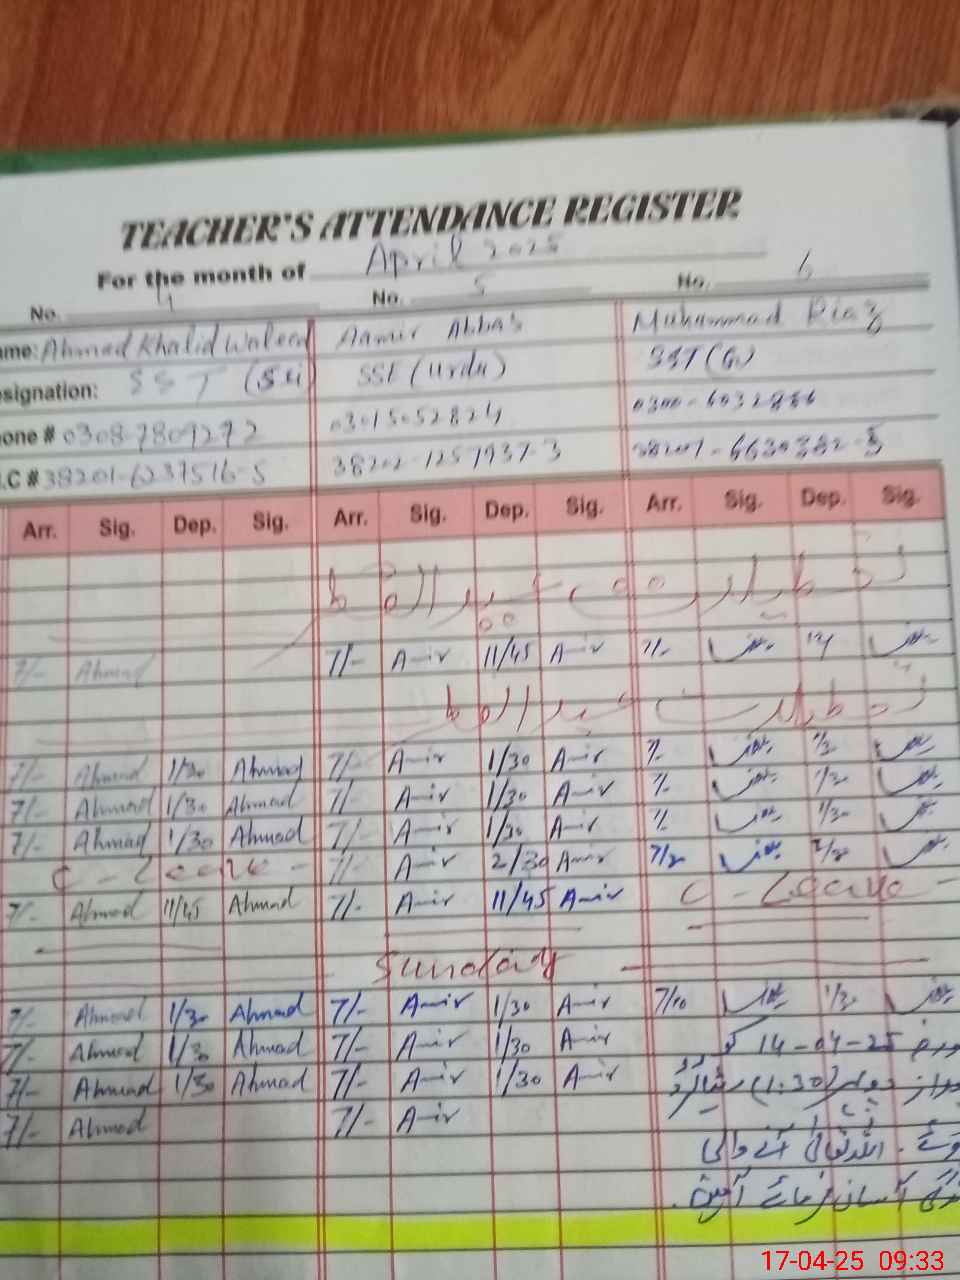 TEACHER'S ATTENDANCE REGISTER
For the month of April 2025
No. 4 No. 5 No. 6
ame: Ahmad Khalid Waleed Aamir Abbas Muhammad Riaz
signation: SST (Sci) SST (Urdu) SST (G)
one # 0308-7809272 03015052824
.C # 38201-6237516-5 38202-1257937-3
Arr. Sig. Dep. Sig. Arr. Sig. Dep. Sig. Arr. Sig. Dep. Sig.
تعطیلات عیدالفطر
7/- Ahmad 7/- Amir 11/45 Amir 7/-
تعطیلات عیدالفطر
7/- Ahmad 1/30 Ahmad 7/- Amir 1/30 Amir 7/- 1/30
7/- Ahmad 1/30 Ahmad 7/- Amir 1/30 Amir 7/- 1/30
7/- Ahmad 1/30 Ahmad 7/- Amir 1/30 Amir 7/- 1/30
C - Leave - 7/- Amir 2/30 Amir
7/- Ahmad 11/45 Ahmad 7/- Amir 11/45 Amir C - Leave -
Sunday
7/- Ahmad 1/30 Ahmad 7/- Amir 1/30 Amir 7/10 1/30
7/- Ahmad 1/30 Ahmad 7/- Amir 1/30 Amir 14-04-25 کو
7/- Ahmad 1/30 Ahmad 7/- Amir 1/30 Amir (1:30) ریٹائرڈ
7/- Ahmad 7/- Amir
اللہ تعالیٰ آنے والی
آسان فرمائے آمین
17-04-25 09:33